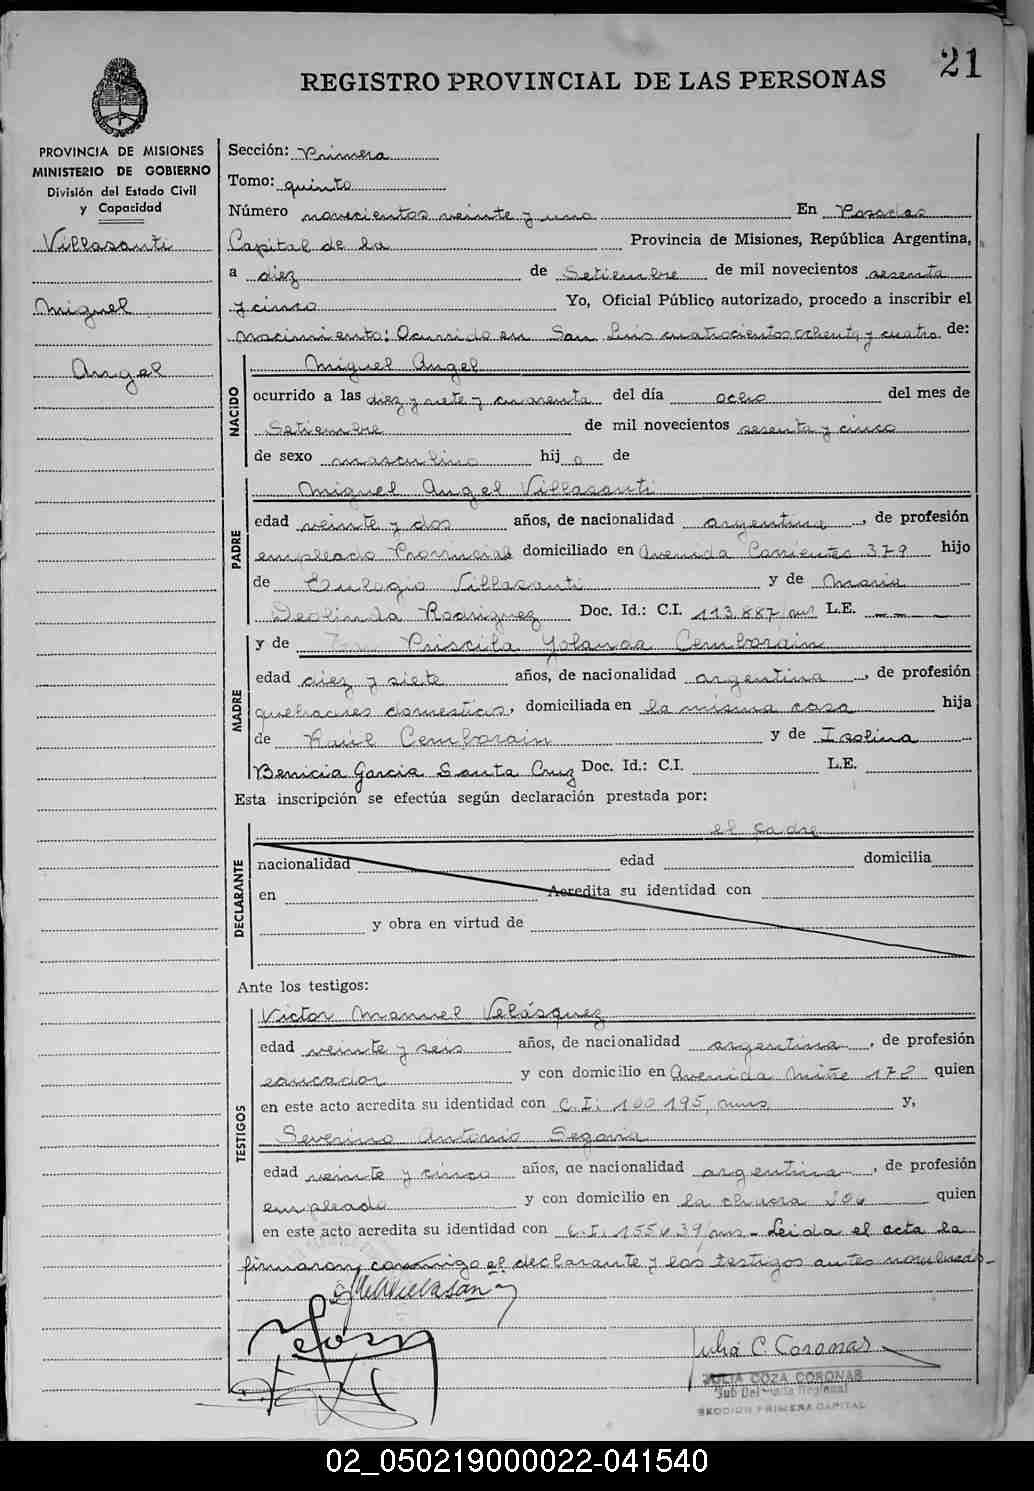 21
REGISTRO PROVINCIAL DE LAS PERSONAS
PROVINCIA DE MISIONES
MINISTERIO DE GOBIERNO
División del Estado Civil
y Capacidad
Villasanti
Miguel
Angel
Sección: Primera
Tomo: quinto
Número novecientos veinte y uno En Posadas
Capital de la Provincia de Misiones, República Argentina,
a diez de Setiembre de mil novecientos sesenta
y cinco Yo, Oficial Público autorizado, procedo a inscribir el
nacimiento: Ocurrido en San Luis cuatrocientos ochenta y cuatro de:
NACIDO
Miguel Angel
ocurrido a las diez y siete y cuarenta del día ocho del mes de
Setiembre de mil novecientos sesenta y cinco
de sexo masculino hijo de
PADRE
Miguel Angel Villasanti
edad veinte y dos años, de nacionalidad argentina, de profesión
empleado Provincial domiciliado en Avenida Corrientes 379 hijo
de Eulogio Villasanti y de Maria
Deolinda Rodriguez Doc. Id.: C.I. 113.887 L.E. — —
MADRE
y de Priscila Yolanda Cemborain
edad diez y siete años, de nacionalidad argentina, de profesión
quehaceres domesticos, domiciliada en la misma casa hija
de Raúl Cemborain y de Isolina
Benicia Garcia Santa Cruz Doc. Id.: C.I. L.E.
Esta inscripción se efectúa según declaración prestada por:
DECLARANTE
el padre
nacionalidad edad domicilia
en Acredita su identidad con
y obra en virtud de
Ante los testigos:
TESTIGOS
Victor Manuel Velásquez
edad veinte y seis años, de nacionalidad argentina, de profesión
educador y con domicilio en Avenida Mitre 172 quien
en este acto acredita su identidad con C.I: 100195, y,
Severino Antonio Segovia
edad veinte y cinco años, de nacionalidad argentina, de profesión
empleado y con domicilio en la chacra quien
en este acto acredita su identidad con C.I. Leida el acta la
firmaron conmigo el declarante y los testigos antes nombrados-
Julia C. Coronas
JULIA COZA CORONAS
SECCION PRIMERA CAPITAL
02_050219000022-041540